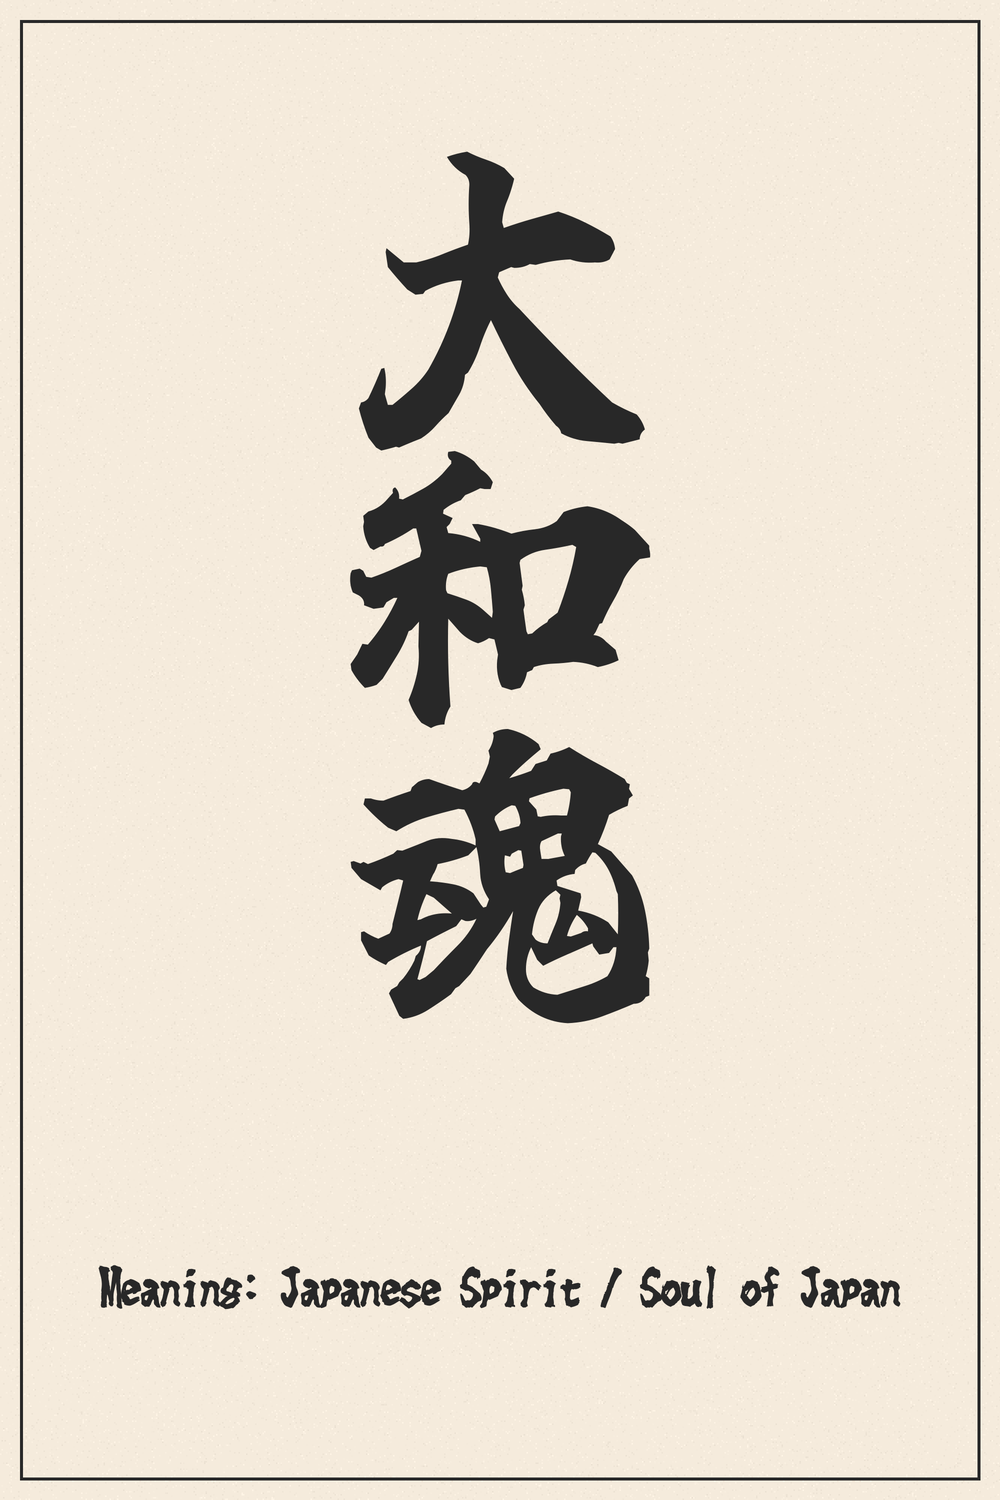 大和魂
Meaning: Japanese Spirit / Soul of Japan